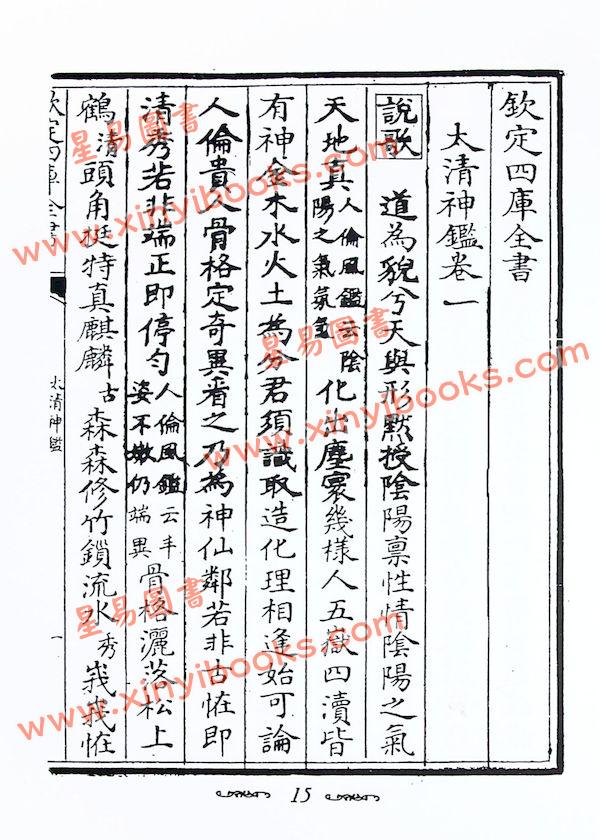 欽定四庫全書
太清神鑑卷一
說歌 道為貌兮天與形默授陰陽禀性情陰陽之氣
天地真人倫風鑑云陰陽之氣氛氳化出塵寰幾様人五嶽四瀆皆
有神金木水火土為分君須識取造化理相逢始可論
人倫貴人骨格定奇異看之乃為神仙鄰若非古恠即
清秀若非端正即停勻人倫風鑑云丰姿不嫩仍端異骨格灑落松上
鶴清頭角挺特真麒麟古森森修竹鎖流水秀峩峩恠
欽定四庫全書
太清神鑑
一
15
星易圖書
www.xinyibooks.com
星易圖書
www.xinyibooks.com
星易圖書
www.xinyibooks.com